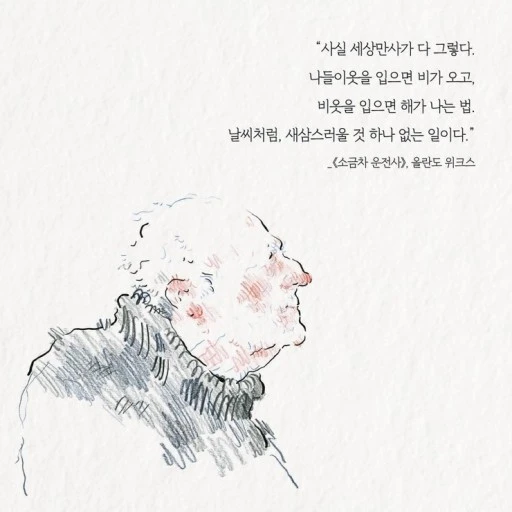 “사실 세상만사가 다 그렇다.
나들이옷을 입으면 비가 오고,
비옷을 입으면 해가 나는 법.
날씨처럼, 새삼스러울 것 하나 없는 일이다.”
_《소금차 운전사》, 올란도 위크스